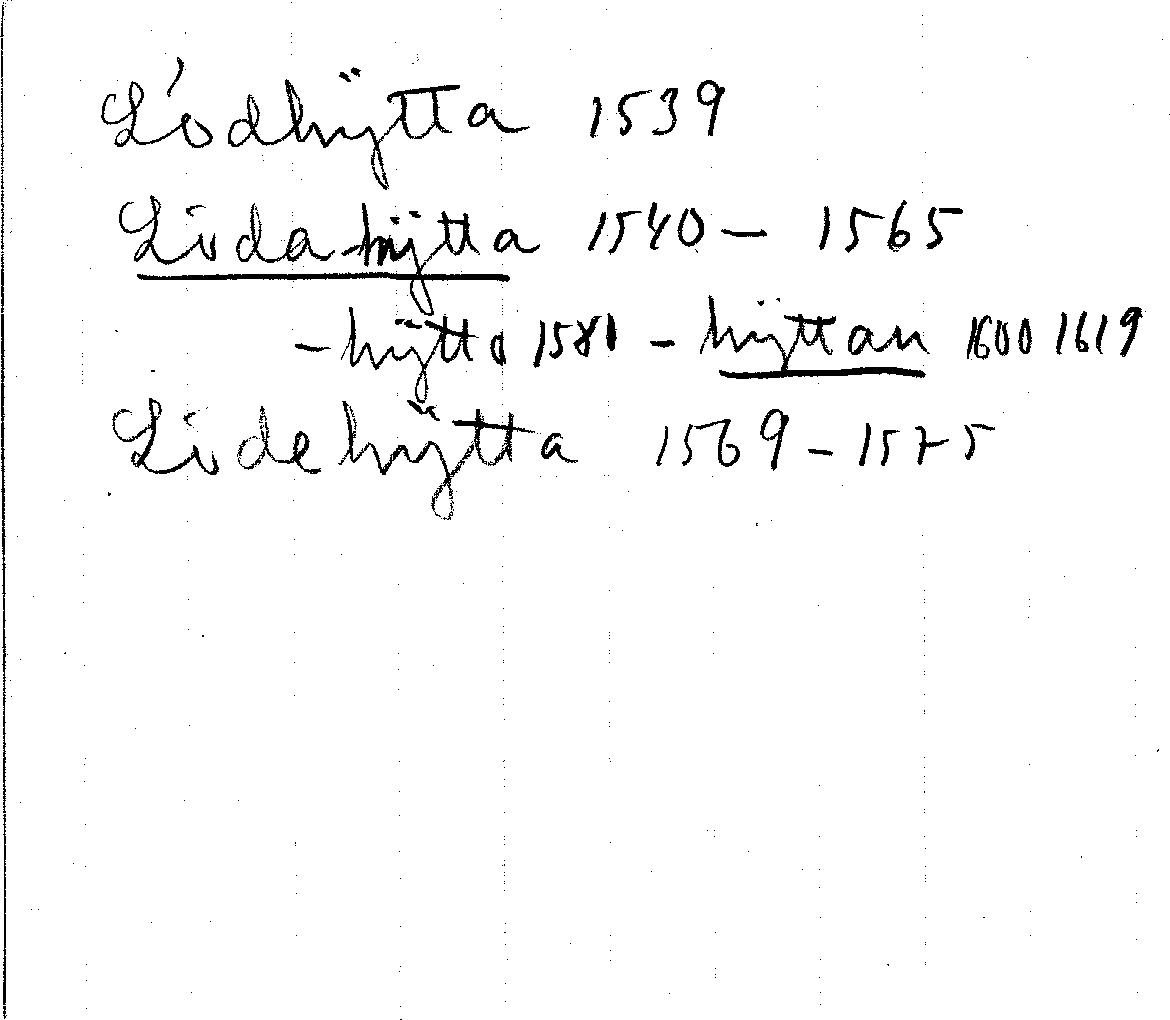 Lódhÿtta 1539
Lidahÿtta 1540 – 1565
– hÿtta 1580 – hÿttan 1600 1619
Lidehÿtta 1569 – 1575